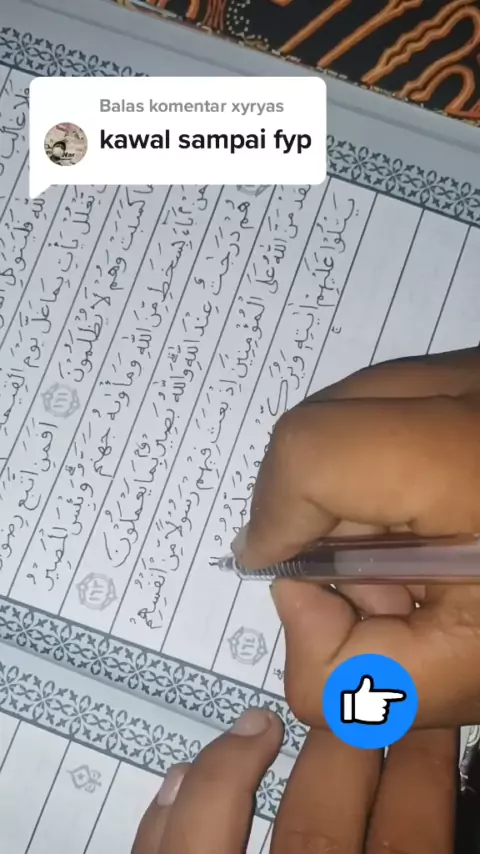 Balas komentar xyryas
kawal sampai fyp
فَلَا غَالِبَ
اللّٰهِ فَلْيَتَوَكَّلِ
يَغْلُلْ يَأْتِ بِمَا غَلَّ يَوْمَ الْقِيٰمَةِ
مَّا كَسَبَتْ وَهُمْ لَا يُظْلَمُوْنَ ١٦١ اَفَمَنِ اتَّبَعَ رِضْوَانَ
بَاۤءَ بِسَخَطٍ مِّنَ اللّٰهِ وَمَأْوٰىهُ جَهَنَّمُ وَبِئْسَ الْمَصِيْرُ ١٦٢
هُمْ دَرَجٰتٌ عِنْدَ اللّٰهِ وَاللّٰهُ بَصِيْرٌۢ بِمَا يَعْمَلُوْنَ
لَقَدْ مَنَّ اللّٰهُ عَلَى الْمُؤْمِنِيْنَ اِذْ بَعَثَ فِيْهِمْ رَسُوْلًا مِّنْ اَنْفُسِهِمْ
يَتْلُوْا عَلَيْهِمْ اٰيٰتِهٖ ١٦٤